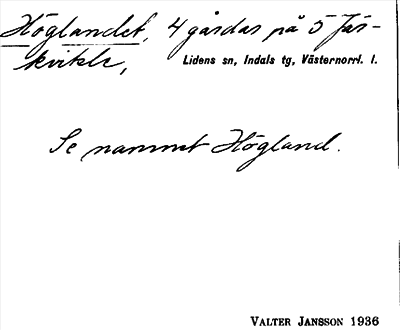 Höglandet, 4 gårdar på 5 Jär-
kvitsle,
Lidens sn, Indals tg, Västernorrl. l.
Se namnet Högland.
VALTER JANSSON 1936